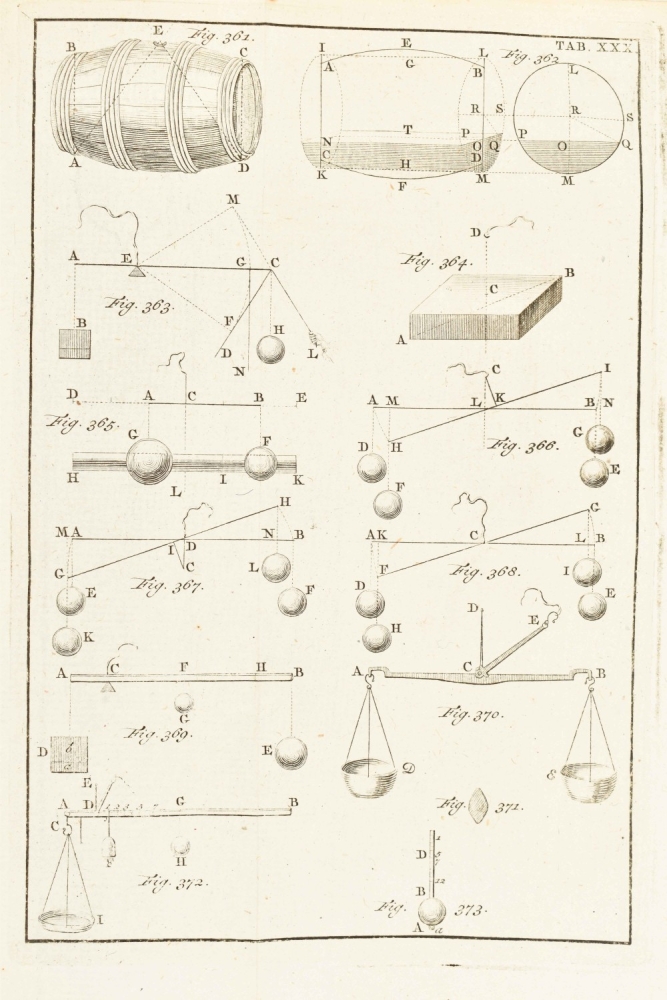 TAB. XXX
E Fig. 361.
B C
A D
I E L Fig. 362
A G B L
R S R S
N T P Q P Q
C O O
H D
K F M M
M
A E G C
Fig. 363.
B F H
D L
N
D
Fig. 364.
B
C
A
D A C B E
Fig. 365.
G F
H L I K
C I
A M L K B N
Fig. 366.
D H G
F E
H
M A I D N B
C
G Fig. 367. L
E F
K
G
A K C L B
F Fig. 368. I
D E
H
A C F H B
G
Fig. 369.
D E
D E
A C B
Fig. 370.
D E
Fig. 371.
E
A D G B
C
F H
Fig. 372.
I
D
12
B
Fig. 373.
A a